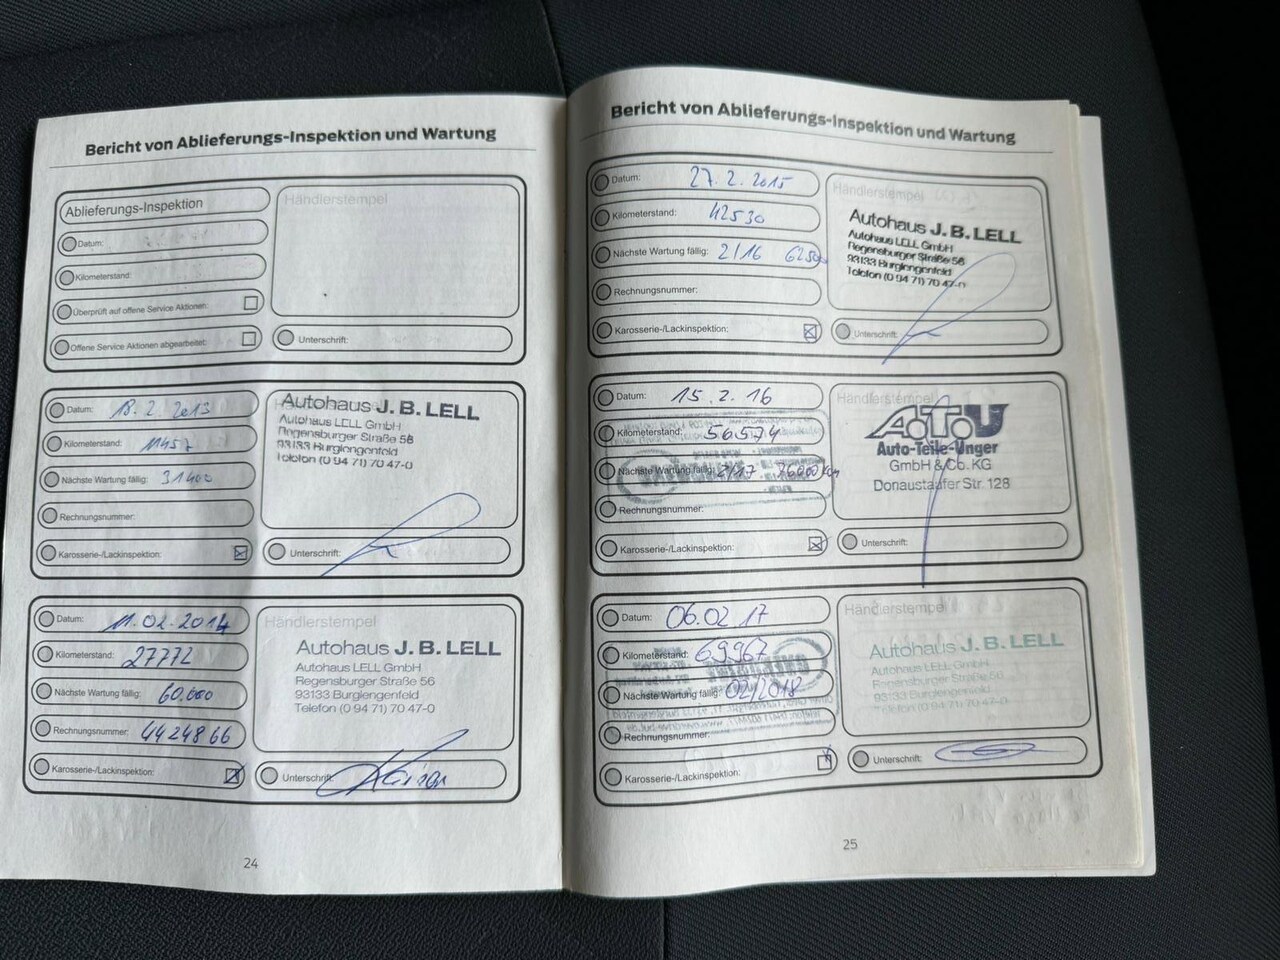 Bericht von Ablieferungs-Inspektion und Wartung
Ablieferungs-Inspektion
Datum:
Kilometerstand:
Überprüft auf offene Service Aktionen:
Offene Service Aktionen abgearbeitet:
Händlerstempel
Unterschrift:
Datum: 18. 2. 2013
Kilometerstand: 11457
Nächste Wartung fällig: 31400
Rechnungsnummer:
Karosserie-/Lackinspektion:
Autohaus J. B. LELL
Autohaus LELL GmbH
Regensburger Straße 56
93133 Burglengenfeld
Telefon (0 94 71) 70 47-0
Unterschrift:
Datum: 11.02.2014
Kilometerstand: 27772
Nächste Wartung fällig: 60.000
Rechnungsnummer: 4424866
Karosserie-/Lackinspektion:
Händlerstempel
Autohaus J. B. LELL
Autohaus LELL GmbH
Regensburger Straße 56
93133 Burglengenfeld
Telefon (0 94 71) 70 47-0
Unterschrift:
24
Bericht von Ablieferungs-Inspektion und Wartung
Datum: 27. 2. 2015
Kilometerstand: 42530
Nächste Wartung fällig: 2/16
Rechnungsnummer:
Karosserie-/Lackinspektion:
Händlerstempel
Autohaus J. B. LELL
Autohaus LELL GmbH
Regensburger Straße 56
93133 Burglengenfeld
Telefon (0 94 71) 70 47-0
Unterschrift:
Datum: 15. 2. 16
Kilometerstand: 56574
Nächste Wartung fällig: 2/17
Rechnungsnummer:
Karosserie-/Lackinspektion:
Händlerstempel
A.T.U
Auto-Teile-Unger
GmbH & Co. KG
Donaustaufer Str. 128
Unterschrift:
Datum: 06.02.17
Kilometerstand: 69967
Nächste Wartung fällig: 02/2018
Rechnungsnummer:
Karosserie-/Lackinspektion:
Händlerstempel
Autohaus J. B. LELL
Autohaus LELL GmbH
Regensburger Straße 56
93133 Burglengenfeld
Telefon (0 94 71) 70 47-0
Unterschrift:
25